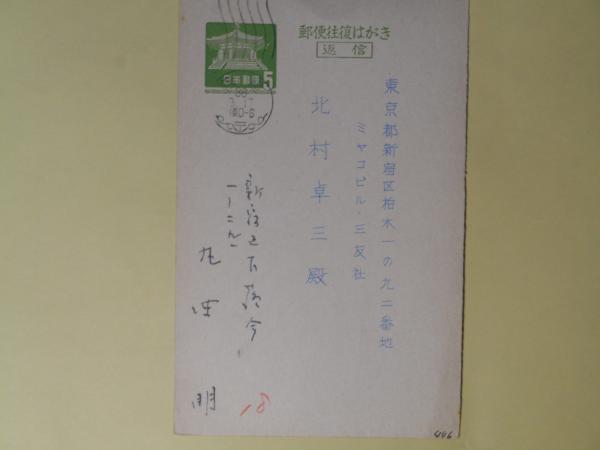 郵便往復はがき
返信
日本郵便 5
東京都新宿区柏木一の九二番地
ミヤコビル・三友社
北村卓三殿
新宿区下落合
明
18
446